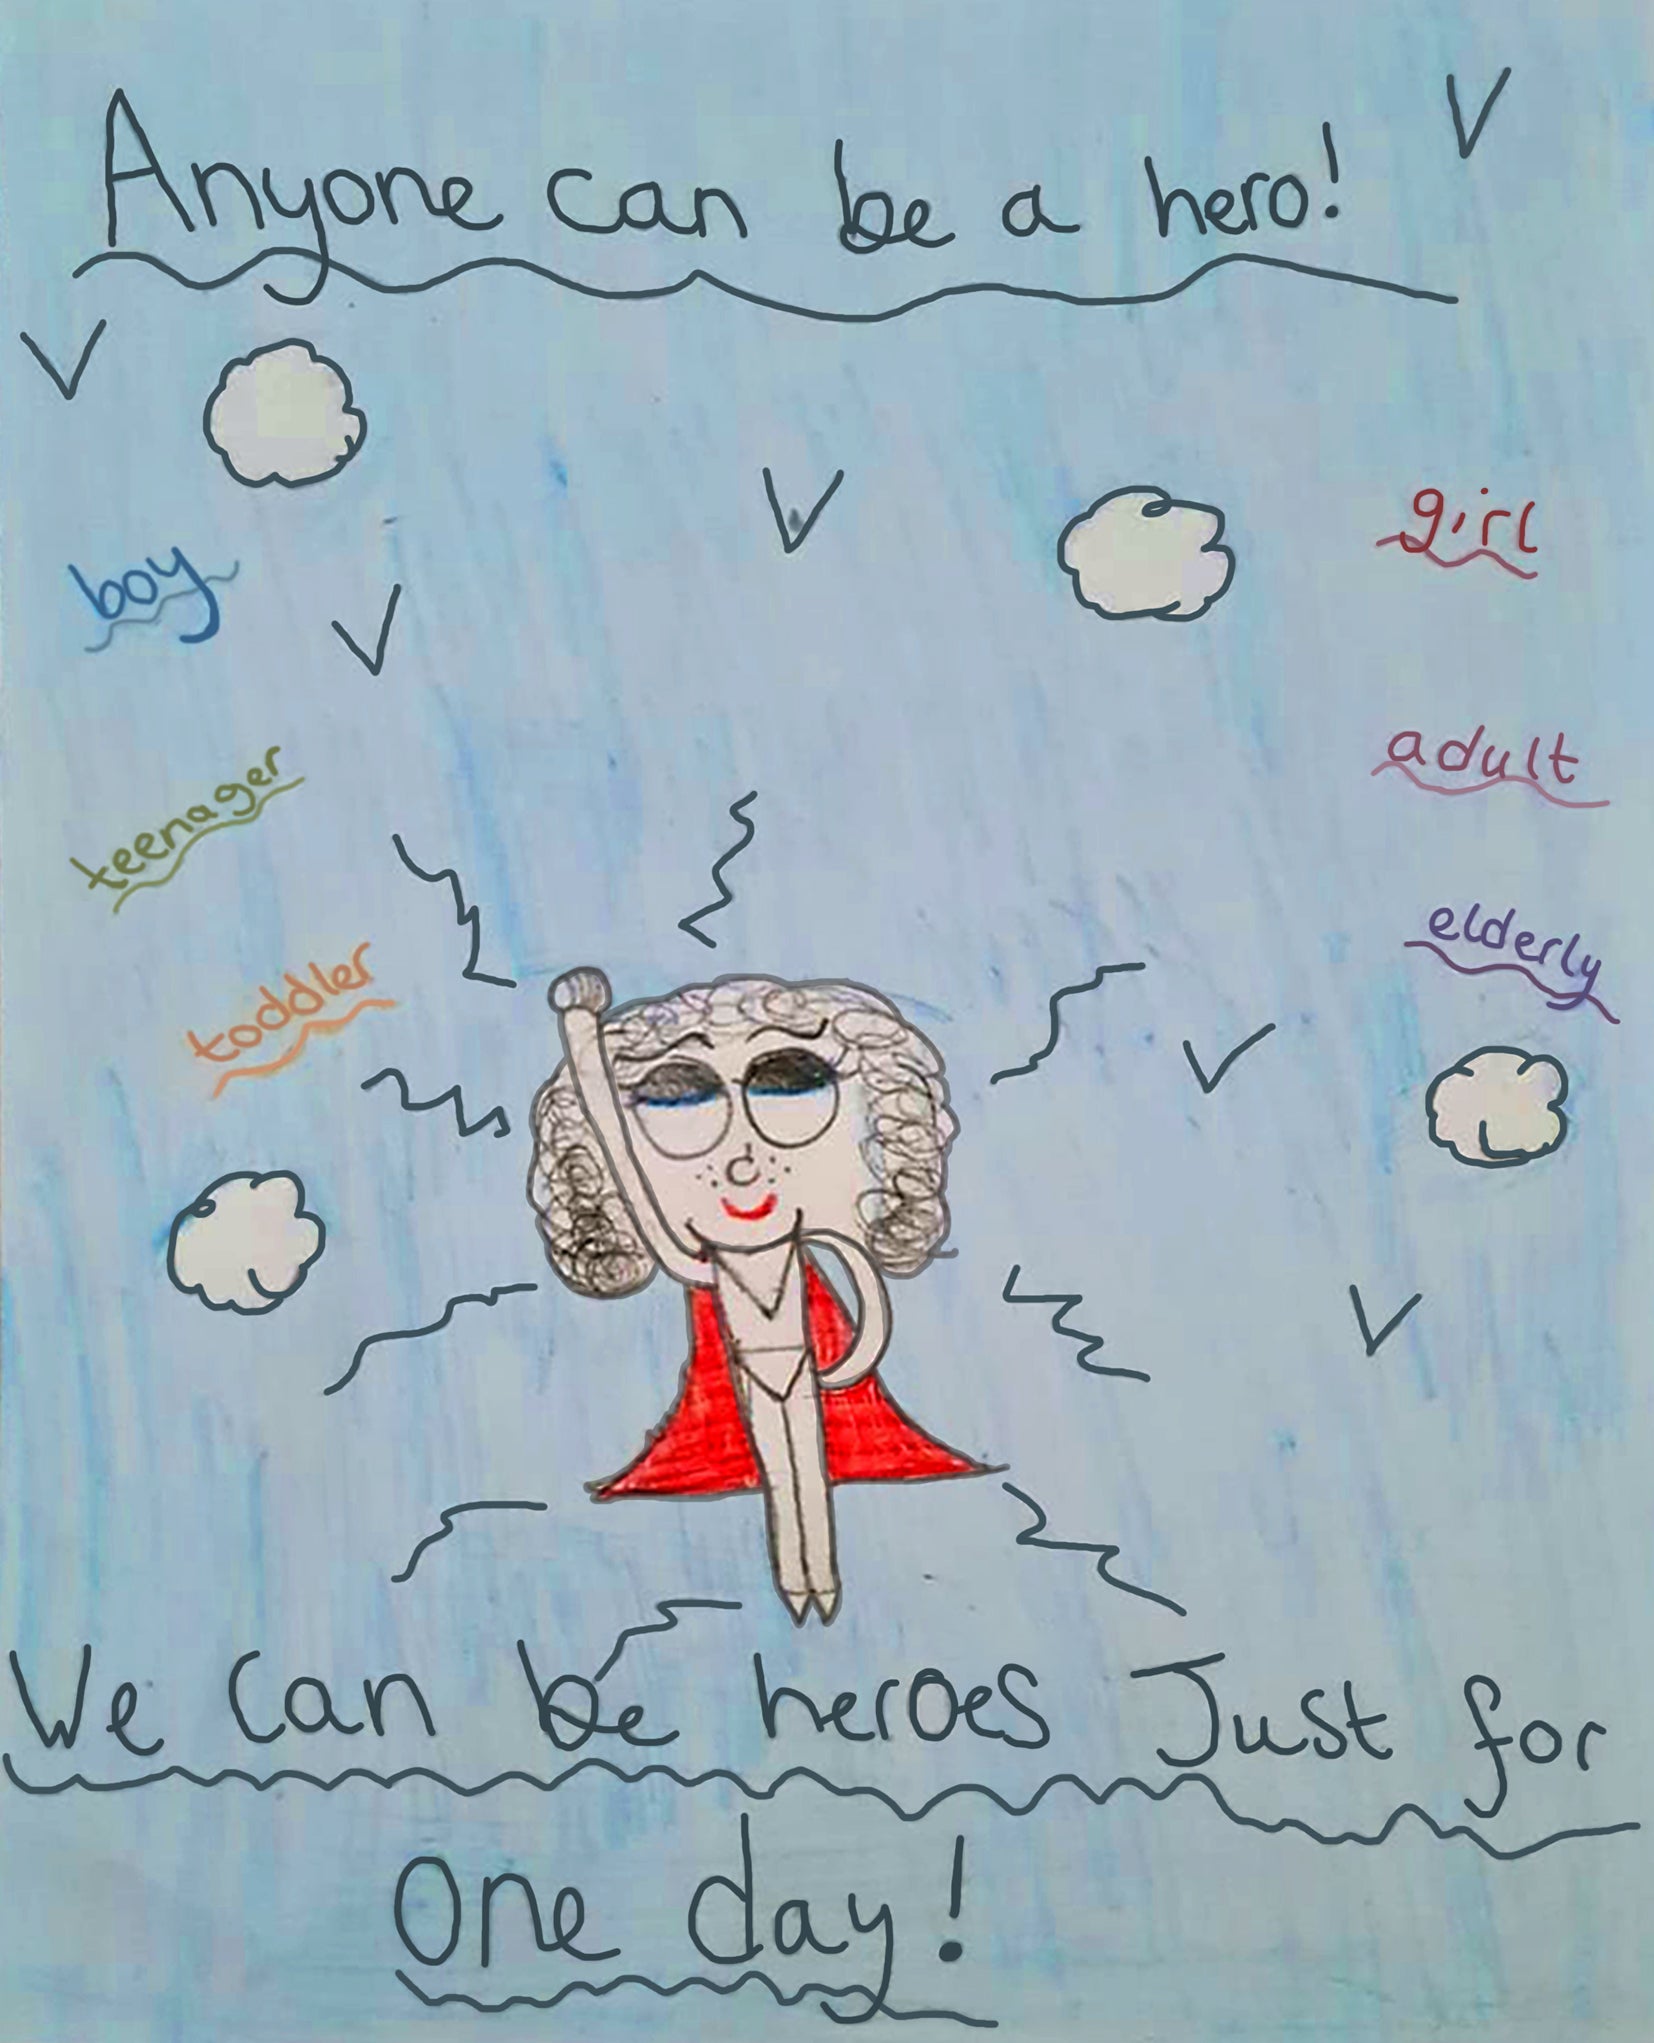 Anyone can be a hero!
girl
boy
adult
teenager
elderly
toddler
We can be heroes Just for
One day!